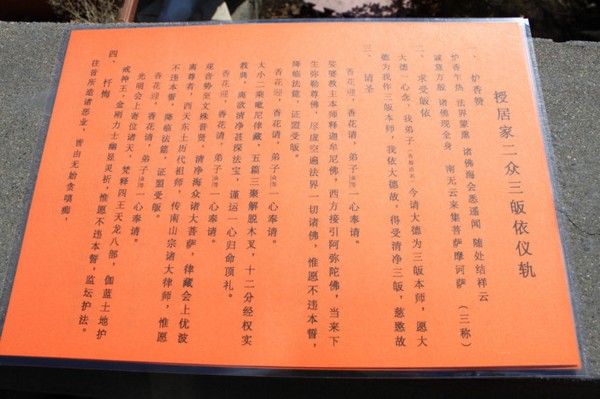 授居家二众三皈依仪轨
一、炉香赞
炉香乍热 法界蒙熏 诸佛海会悉遥闻 随处结祥云
诚意方殷 诸佛现全身 南无云来集菩萨摩诃萨 (三称)
二、求受皈依
大德一心念，我弟子 今请大德为三皈本师，愿大
德为我作三皈本师，我依大德故，得受清净三皈，慈愍故
三、请圣
香花迎，香花请，弟子 一心奉请。
娑婆教主本师释迦牟尼佛，西方接引阿弥陀佛，当来下
生弥勒尊佛，尽虚空遍法界一切诸佛，惟愿不违本誓，
降临法筵，证盟受皈。
香花迎，香花请，弟子 一心奉请。
大小二乘毗尼律藏，五篇三聚解脱木叉，十二分经权实
教典，离欲清净甚深法宝，谨运一心归命顶礼。
香花迎，香花请，弟子 一心奉请。
文殊普贤，清净海众诸大菩萨，律藏会上优波
离尊者，西天东土历代祖师，传南山宗诸大律师，惟愿
不违本誓，降临法筵，证盟受皈。
香花迎，香花请，弟子 一心奉请。
光明会上寄位诸天，梵释四王天龙八部，伽蓝土地护
戒神王，金刚力士幽显灵祈，惟愿不违本誓，监坛护法。
四、忏悔
往昔所造诸恶业，皆由无始贪嗔痴，